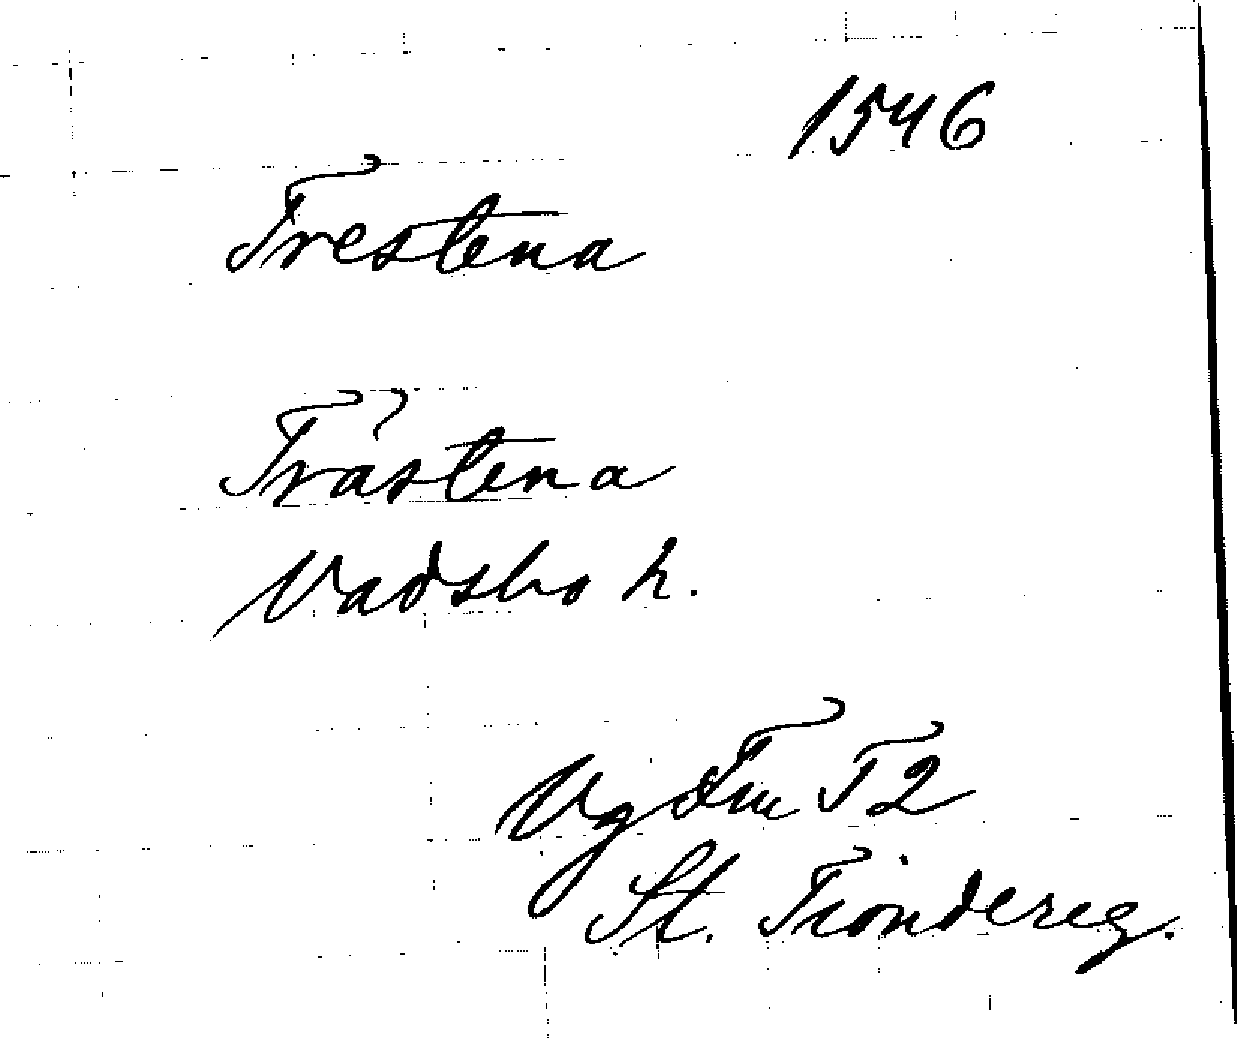 1546
Trestena
Trästena
Vadsbo h.
Vg
T 2
St. Tiondereg.